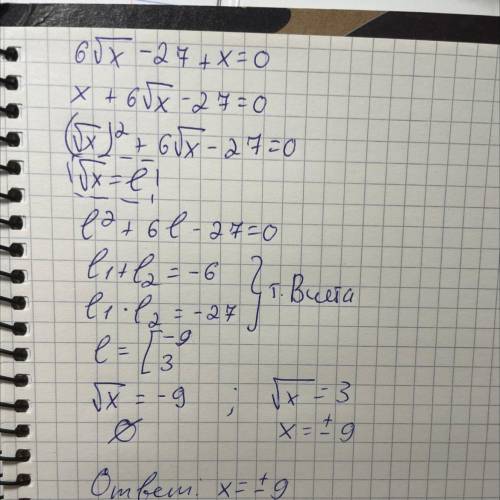 6√x - 27 + x = 0
x + 6√x - 27 = 0
(√x)² + 6√x - 27 = 0
√x = l
l² + 6l - 27 = 0
l₁ + l₂ = -6
l₁ · l₂ = -27 } т. Виета
l = [ -9
3
√x = -9 ; √x = 3
∅ x = ± 9
Ответ: x = ± 9